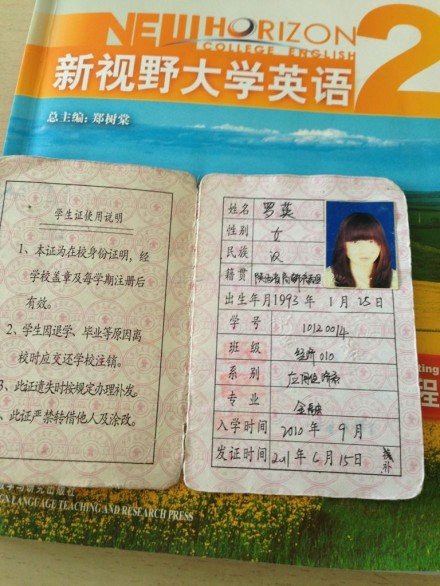 NEW HORIZON
COLLEGE ENGLISH
新视野大学英语 2
总主编:郑树棠
学生证使用说明
1、本证为在校身份证明，经
学校盖章及每学期注册后
有效。
2、学生因退学、毕业等原因离
校时应交还学校注销。
3、此证遗失时按规定办理补发。
、此证严禁转借他人及涂改。
姓名 罗英
性别 女
民族 汉
籍贯
出生年月1993年1月25日
学号 10120014
班级 经济010
系别
专业
入学时间 2010年9月
发证时间 2011年6月15日
补
程
LANGUAGE TEACHING AND RESEARCH PRESS